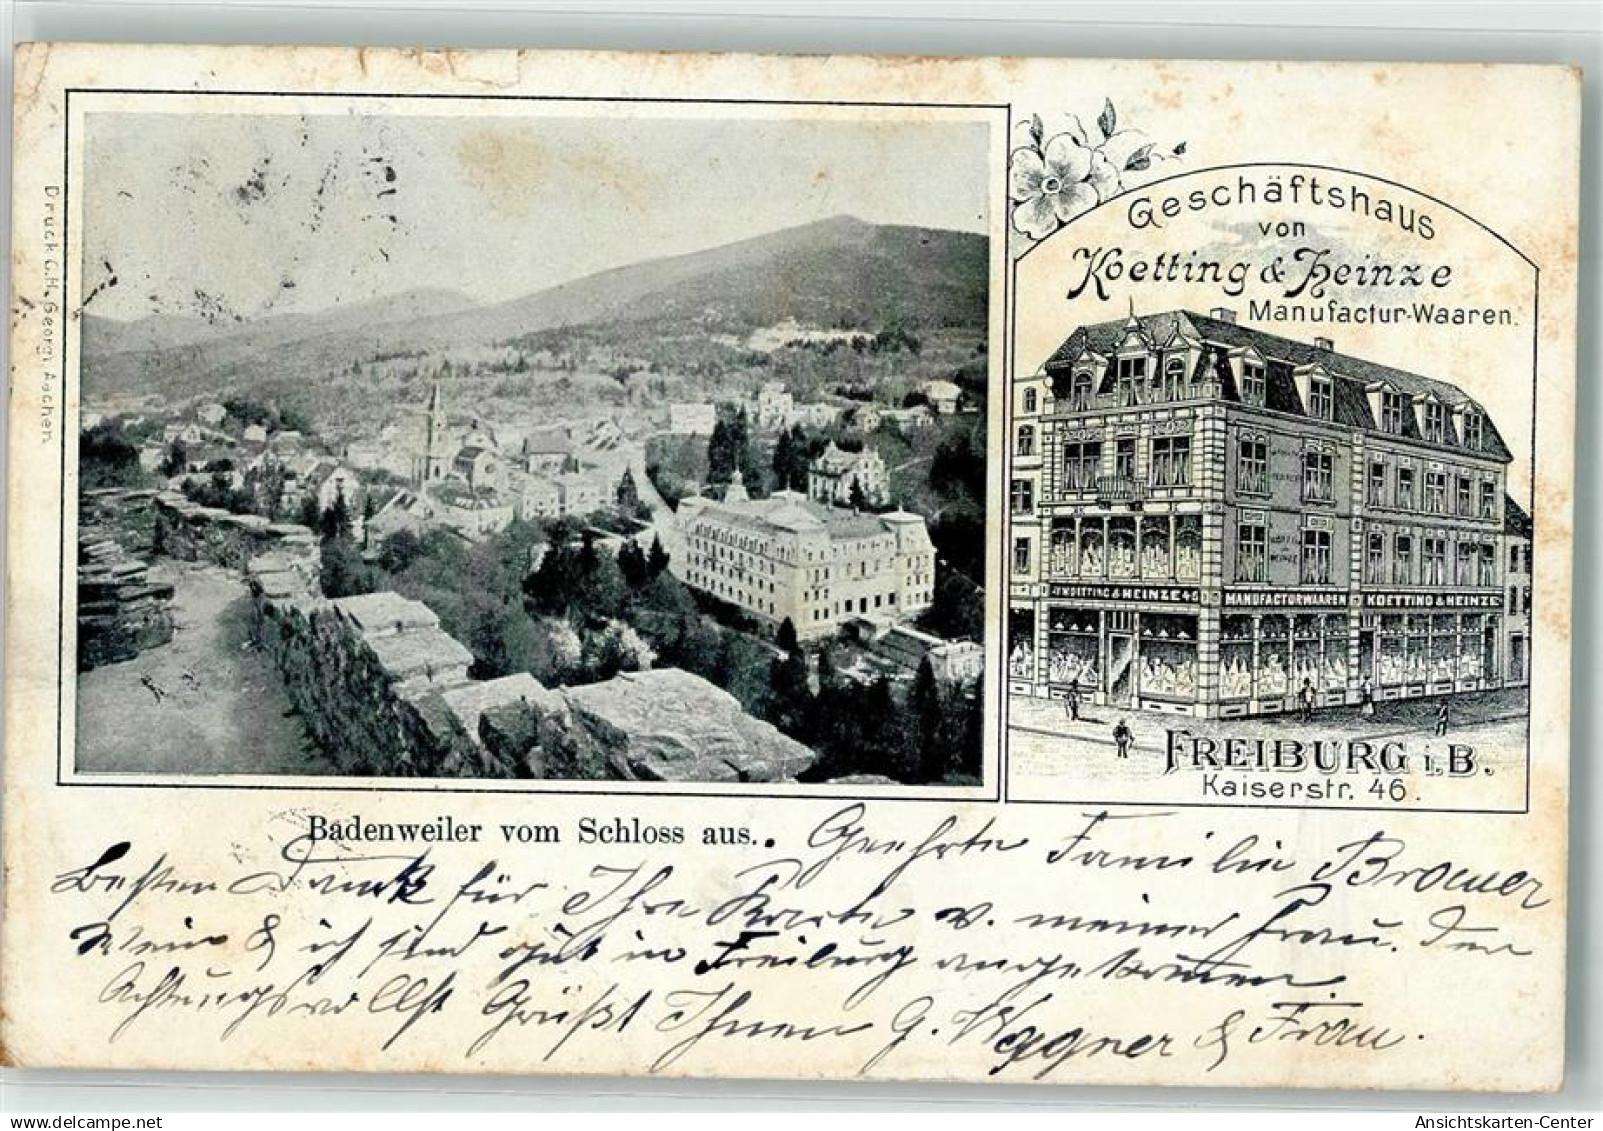 Druck C.H. Georgi Aachen
Geschäftshaus
von
Koetting & Heinze
Manufactur-Waaren.
KOETTING & HEINZE 46
MANUFACTURWAAREN
KOETTING & HEINZE
FREIBURG i.B.
Kaiserstr. 46.
Badenweiler vom Schloss aus.
Geehrte Familie Brouwer
Besten Dank für Ihre Karte v. meiner Frau. Den
Wein & ich sind gut in Freiburg angekommen.
Achtungsvollst Grüßt Ihnen G. Waggner & Frau.
Ansichtskarten-Center